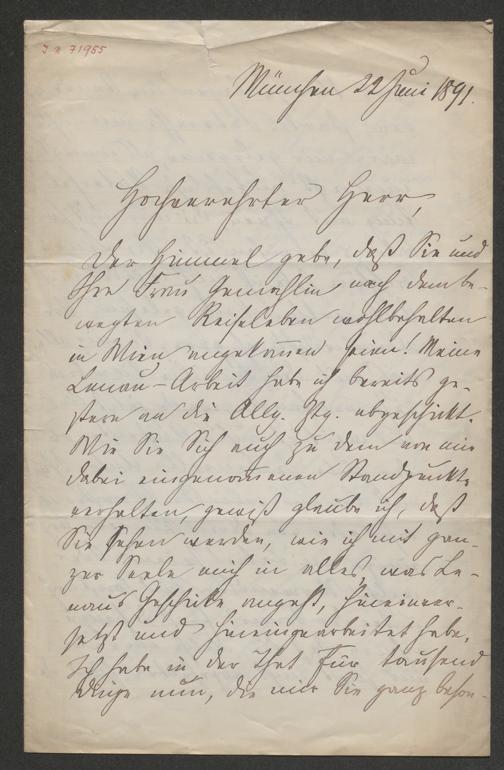 I.N. 71955
München 22 Juni 1891.
Hochverehrter Herr,
Der Himmel gebe, daß Sie und
Ihre Frau Gemahlin nach dem be-
wegten Reiseleben wohlbehalten
in Wien angekommen seien! Meine
Lenau-Arbeit habe ich bereits ge-
stern an die Allg. Ztg. abgeschickt.
Wie Sie Sich auch zu dem von mir
dabei eingenommenen Standpunkte
verhalten, gewiß glaube ich, daß
Sie sehen werden, wie ich mit gan-
zer Seele mich in alles, was Le-
naus Geschicke angeht, hineinver-
setzt und hineingearbeitet habe.
Ich habe in der That für tausend
Dinge nun, die mir Sie ganz beson-